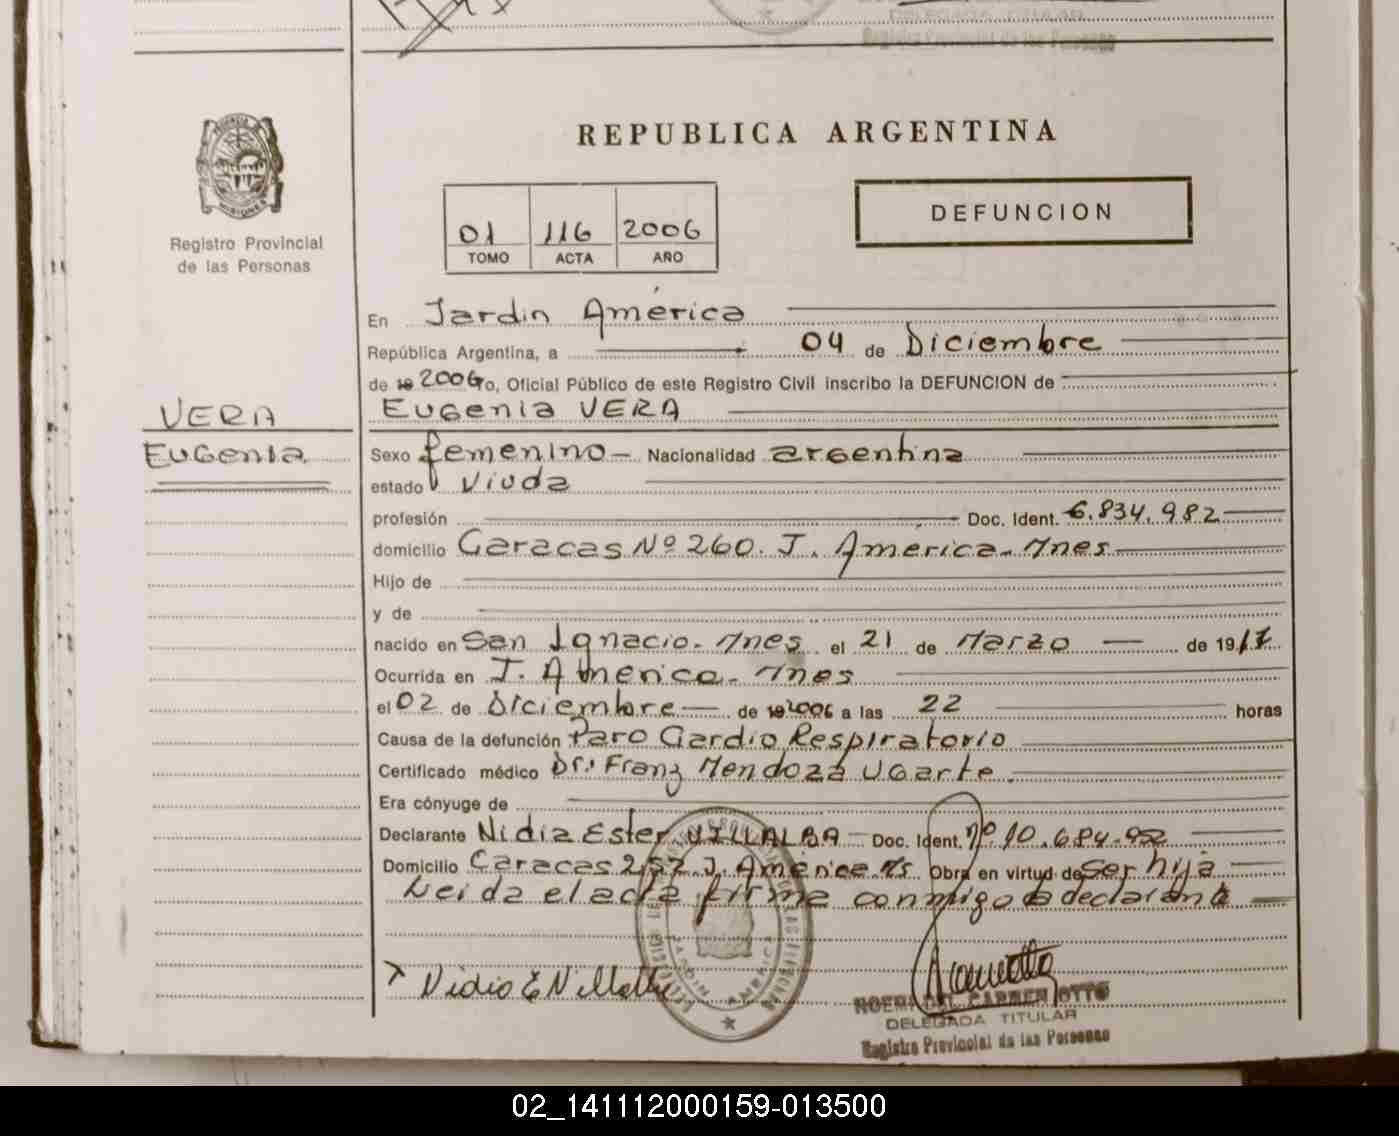 DELEGADA TITULAR
Registro Provincial de las Personas
PROVINCIA DE
MISIONES
Registro Provincial
de las Personas
REPUBLICA ARGENTINA
01 116 2006
TOMO ACTA AÑO
DEFUNCION
En Jardin América
República Argentina, a 04 de Diciembre
de 19 2006 Yo, Oficial Público de este Registro Civil inscribo la DEFUNCION de
Eugenia VERA
VERA
Eugenia
Sexo femenino - Nacionalidad argentina
estado Viuda
profesión Doc. Ident. 6.834.982
domicilio Caracas Nº 260. J. América. Mnes
Hijo de
y de
nacido en San Ignacio - Mnes el 21 de Marzo de 1917
Ocurrida en J. América - Mnes
el 02 de Diciembre de 19 2006 a las 22 horas
Causa de la defunción Paro Cardio Respiratorio
Certificado médico Dr. Franz Mendoza Ugarte
Era cónyuge de
Declarante Nidia Ester VILLALBA Doc. Ident. nº 10.684.
Domicilio Caracas 257 J. América Obra en virtud de ser hija
Leida el acta firma conmigo declarant
x Nidia E Villalba
JARDIN AMERICA
NOEMI DEL CARMEN OTTO
DELEGADA TITULAR
Registro Provincial de las Personas
02_141112000159-013500